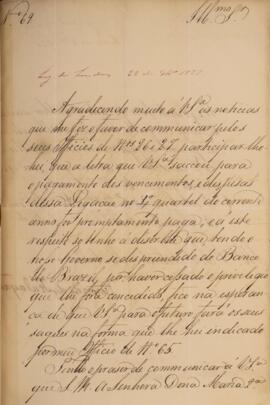 Nº 69
Illmo Snr
Agradecendo muito a VSª as noticias
que me fez o favor de communicar pelos
seus officios de Nos 26 e 27, participar-lhe-
hei, que a letra que VSª saccou para
o pagamento dos vencimentos, e despesas
dessa Legação no 3º quartel do corrente
anno foi promptamente paga; e a este
respeito só tenho a dizer-lhe que tendo o
nosso Governo se desprendido do Banco
do Brazil, por haver cessado o privilegio
que lhe fora concedido, fico na esperan-
ça de que VSª para o futuro fará os seus
saques na forma que lhe hei indicado
por meu Officio de Nº 65.
Tenho o prazer de communicar a VSª
que S. M. a Senhora Dona Maria 2ª